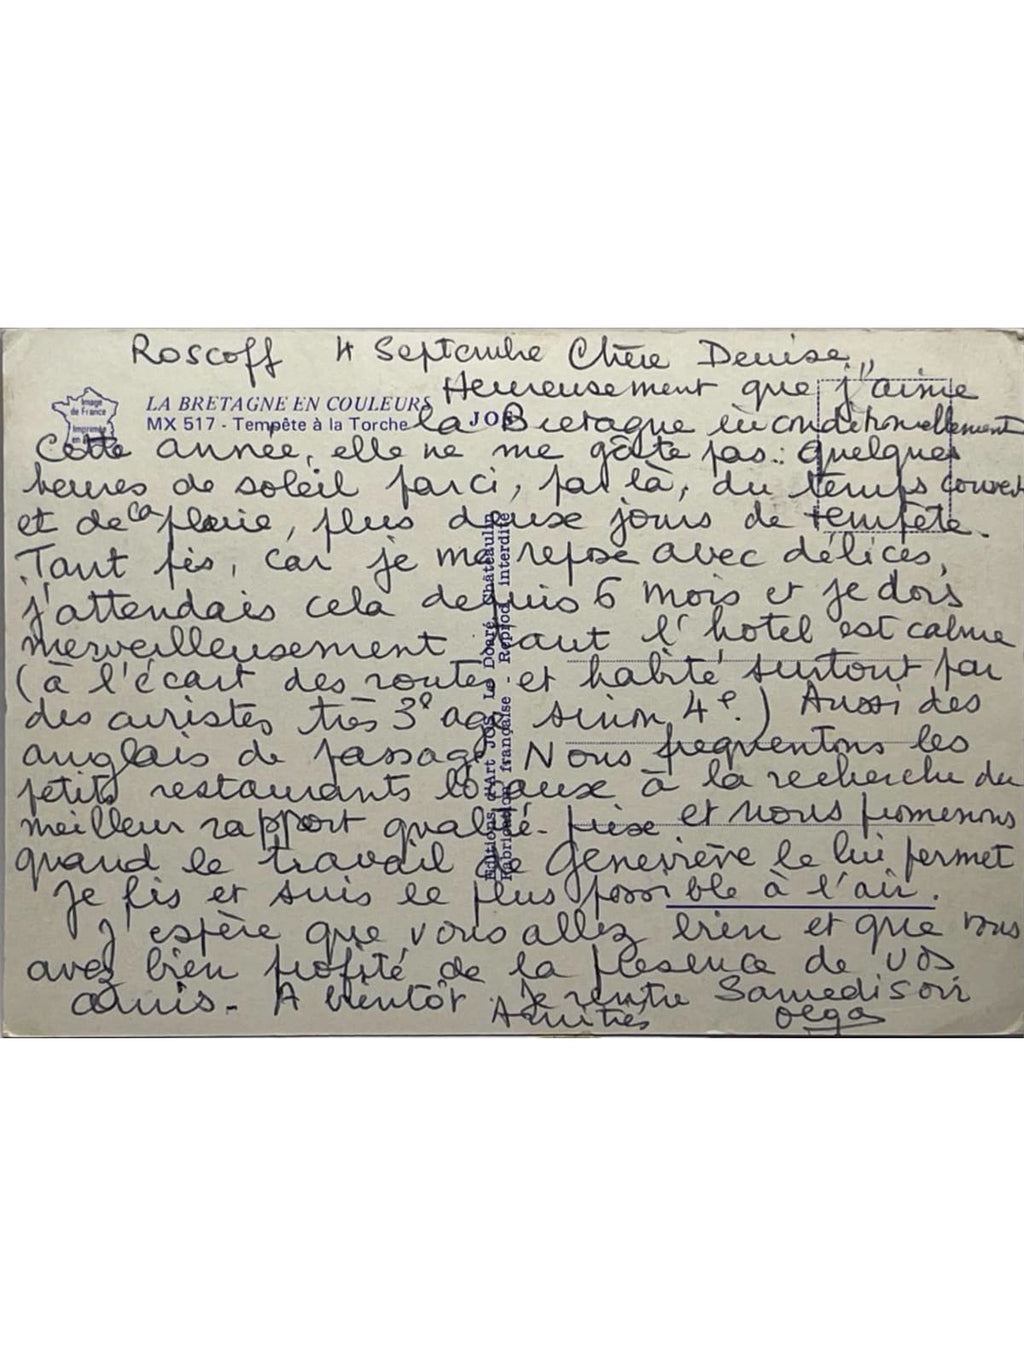 Roscoff 4 Septembre Chère Denise,
Heureusement que j'aime
Image
de France
Imprimée
en
LA BRETAGNE EN COULEURS
MX 517 - Tempête à la Torche
JOS
la Bretagne inconditionnellement
Cette année, elle ne me gâte pas : quelques
heures de soleil parci, par là, du temps couvert
et de la pluie, plus deux jours de tempête.
Tant pis, car je me repose avec délices,
j'attendais cela depuis 6 mois et je dors
merveilleusement tant l'hotel est calme
(à l'écart des routes et habité surtout par
des touristes très 3e age sinon 4e.) Aussi des
anglais de passage. Nous frequentons les
petits restaurants locaux à la recherche du
meilleur rapport qualité-prix et nous promenons
quand le travail de Geneviève le lui permet
Je lis et suis le plus possible à l'air.
J'espère que vous allez bien et que vous
avez bien profité de la présence de vos
amis - A bientôt. Je rentre Samedi soir
Amitiés Olga
Editions d'Art JOS Le Doaré, Châteaulin
Fabrication française - Reprod. interdite